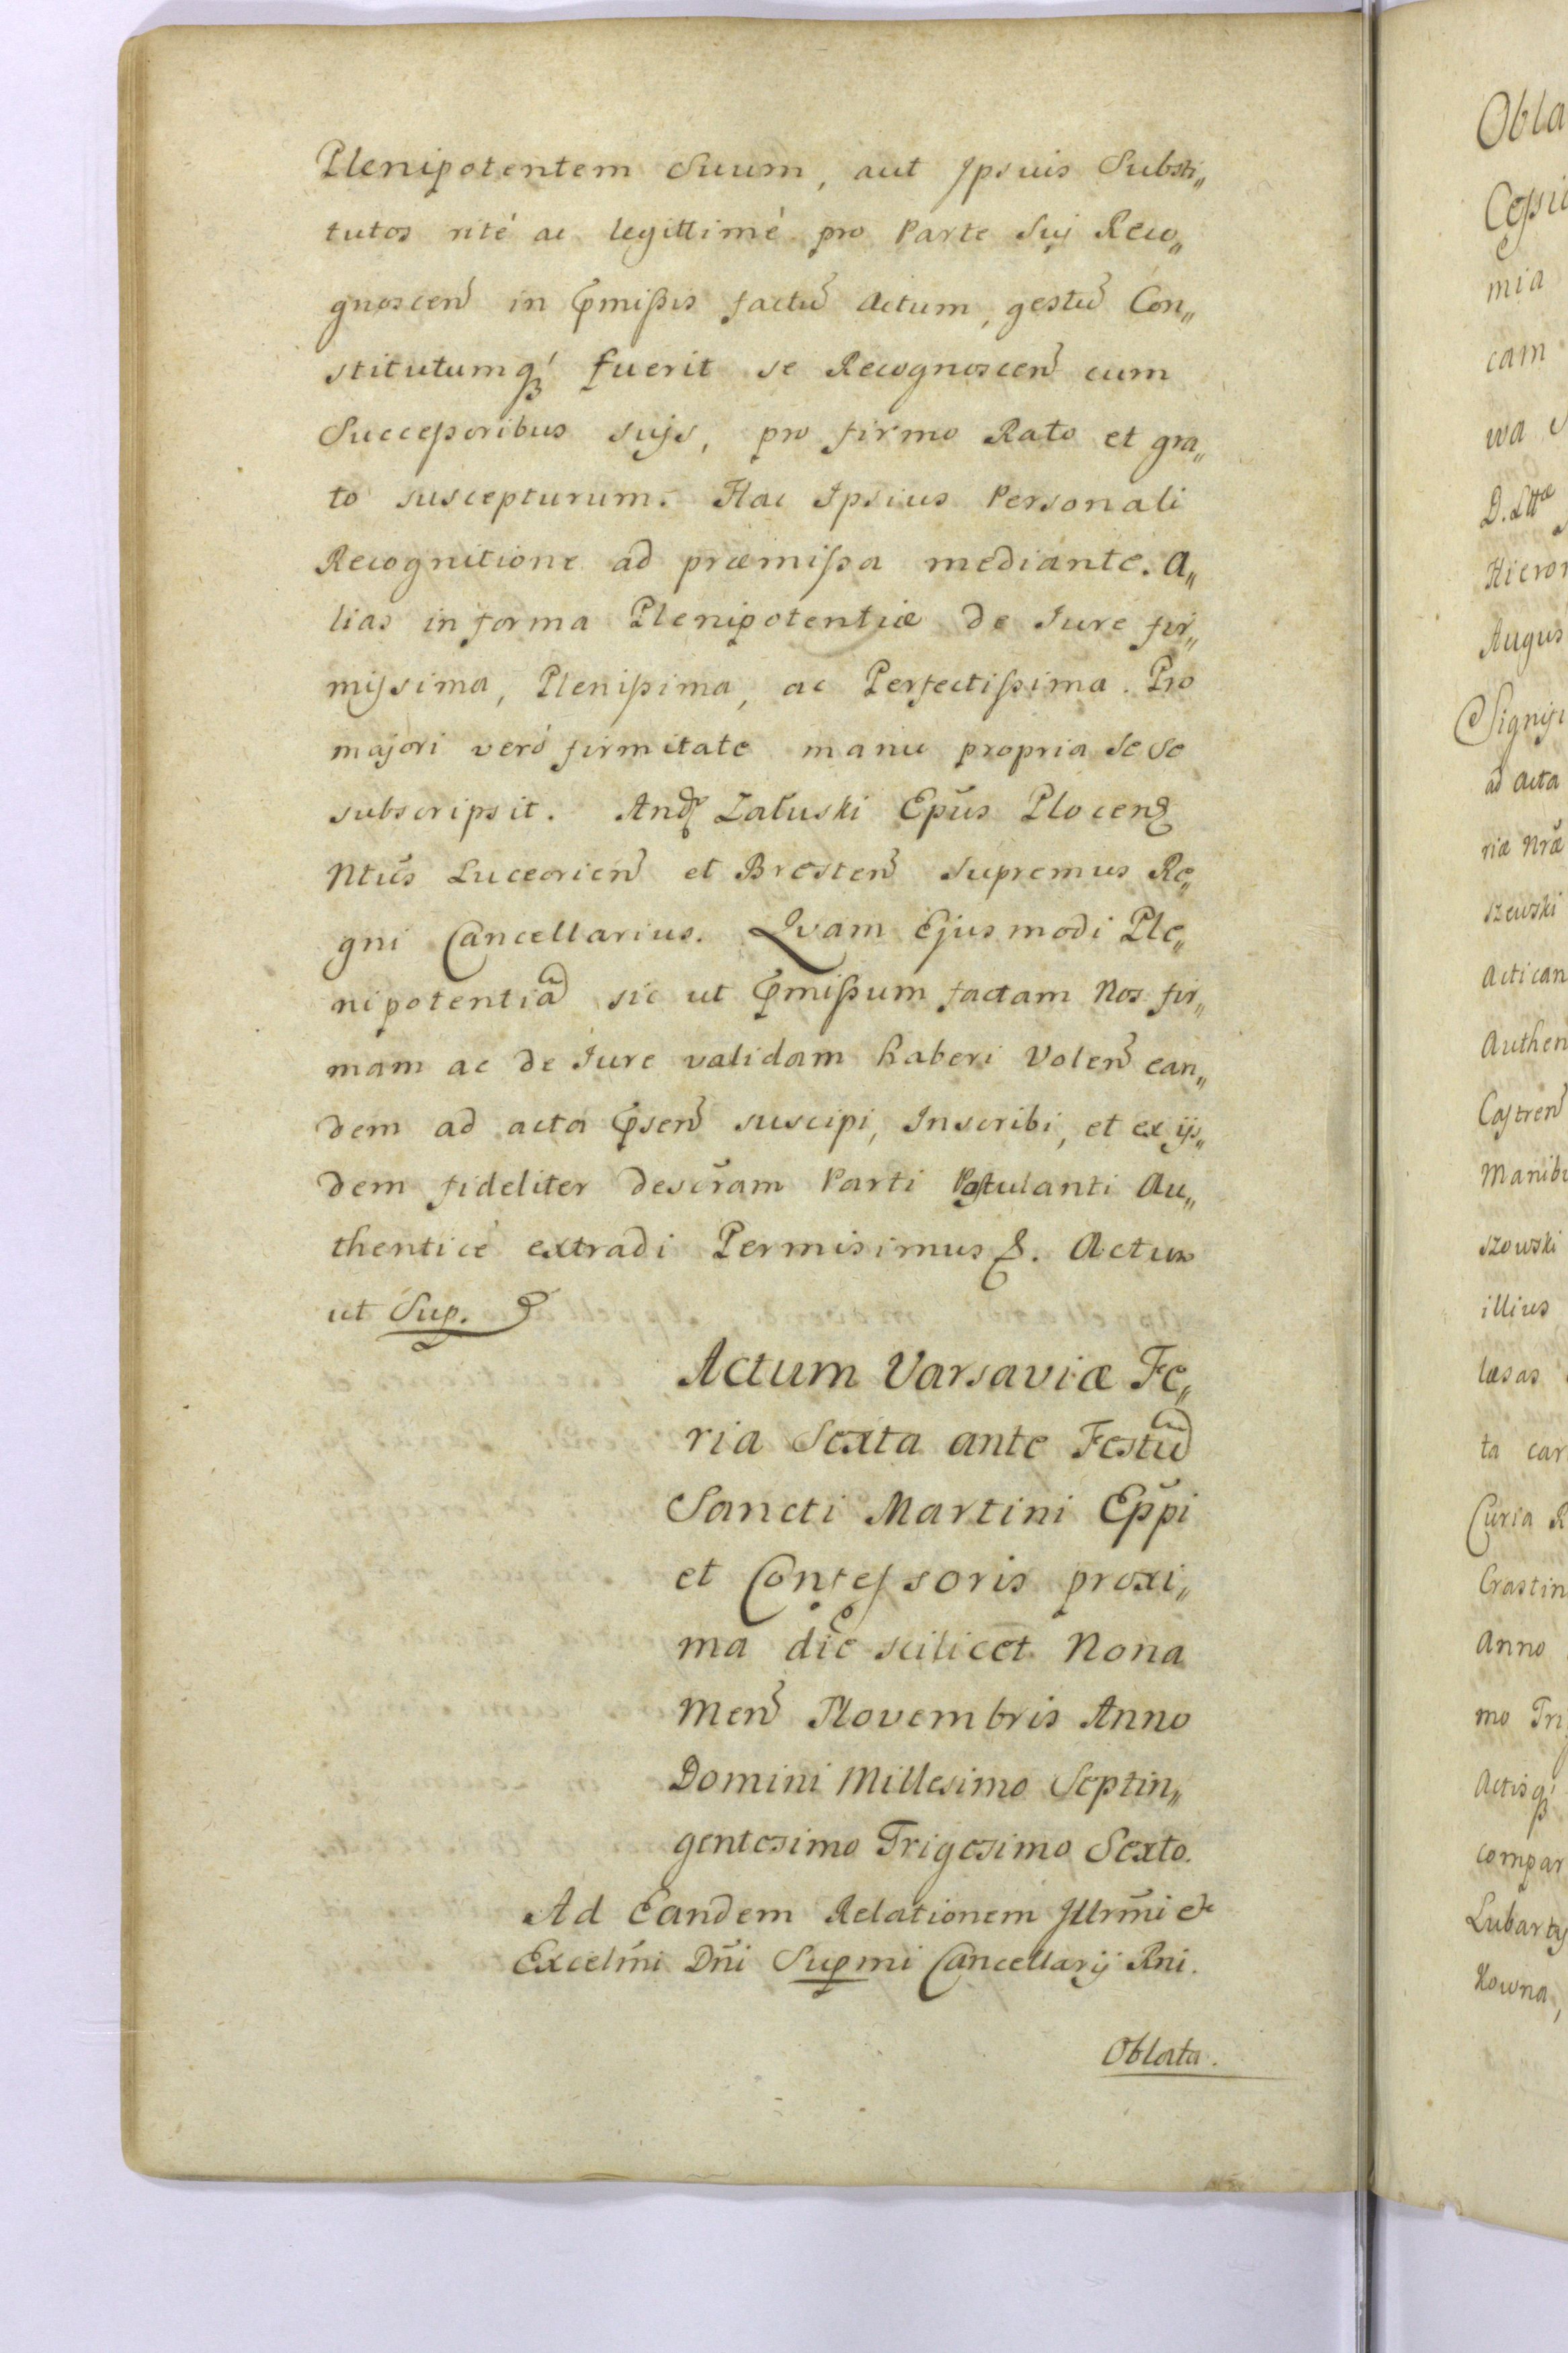 Plenipotentem Suum, aut Ipsuis Substi„
tutos rité ac legittimé pro Parte Suj Reco„
gnoscen̄ in p̄missis factū Actum, gestū Con„
stitutumq́ fuerit se Recognoscen̄ cum
Successoribus sujs, pro firmo Rato et gra„
to suscepturum. Hac Ipsius Personali
Recognitione ad præmissa mediante. A„
lias in forma Plenipotentiæ de Iure fir„
missima, Plenissima, ac Perfectissima. Pro
majori veró firmitate manu propria Se se
subscripsit. Załuski Epūs Plocen̄
Ntūs Luceorien̄ et Bresten̄ Supremus Re„
gni Cancellarius. Qvam Ejusmodi Ple„
nipotentiā sic ut p̄missum factam Nos fir„
mam ac de Iure validam haberi Volen̄ ean„
dem ad acta p̄sen̄ suscipi, Inscribi, et ex ijs„
dem fideliter descr̄am Parti Postulanti Au„
thenticé extradi Permisimus &. Actum
ut Sup.
Actum Varsaviæ Fe„
ria Sexta ante Festū
Sancti Martini Ep̄pi
et Confessoris proxi„
ma die scilicet Nona
Men̄ Novembris Anno
Domini Millesimo Septin„
gentesimo Trigesimo Sexto.
Ad Eandem Relationem Illrm̄i et
Excelm̄i Dn̄i Supmi Cancellarij Rni.
Oblata.
Obla
Cessi
mia
cam
wa
D. Lttæ
Hieron
Augus
Signifi
ad acta
riæ Nræ
szewski
Actican
Authen
Castren̄
Manibu
szowski
illius
læsas
ta car
Curia R
Crastin
Anno
mo Tri
Actisq́
compar
Lubarty
Kowna,